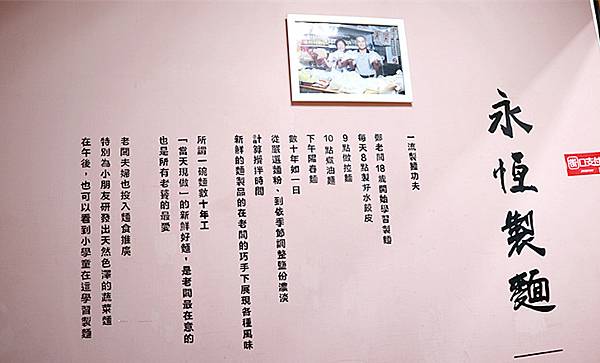 永恆製麵
一流製麵功夫
鄭老闆18歲開始學習製麵
每天8點製好水餃皮
9點做拉麵
10點煮油麵
下午陽春麵
數十年如一日
從嚴選麵粉、到依季節調整鹽份濃淡
計算攪拌時間
新鮮的麵製品的在老闆的巧手下展現各種風味
所謂一碗麵數十年工
「當天現做」的新鮮好麵，是老闆最在意的
也是所有老饕的最愛
老闆夫婦也投入麵食推廣
特別為小朋友研發出天然色澤的蔬菜麵
在午後，也可以看到小學童在這學習製麵